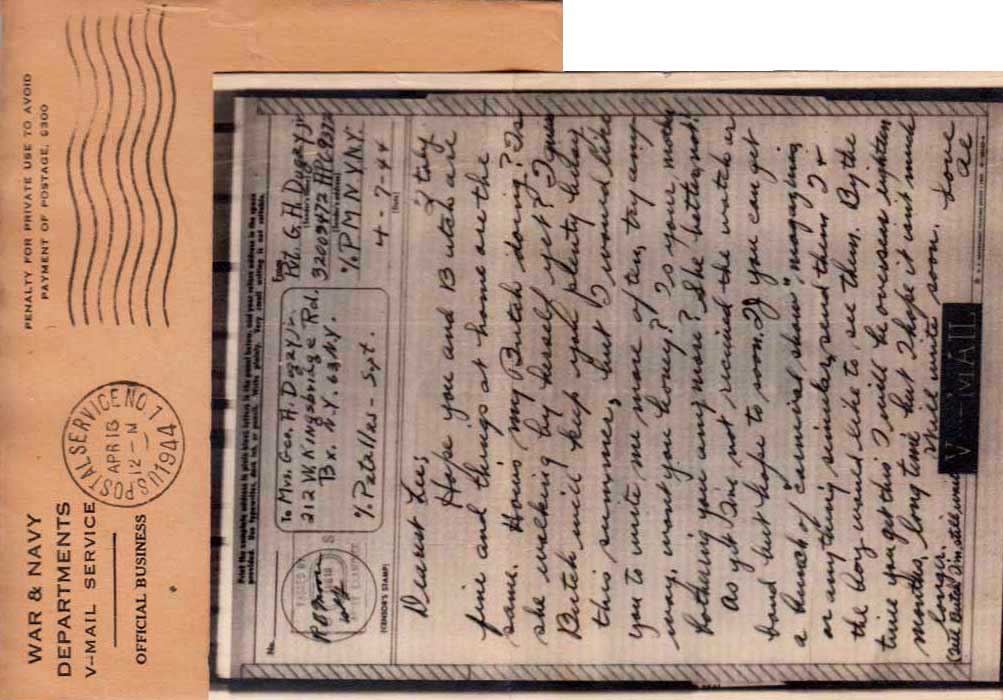 WAR & NAVY
DEPARTMENTS
V-MAIL SERVICE
OFFICIAL BUSINESS
U.S. POSTAL SERVICE NO 1
APR 13
12 - M
1944
PENALTY FOR PRIVATE USE TO AVOID
PAYMENT OF POSTAGE, $300
Print the complete address in plain block letters in the panel below, and your return address in the space
provided. Use typewriter, dark ink, or pencil. Write plainly. Very small writing is not suitable.
No.
(CENSOR'S STAMP)
To Mrs. Geo. A. Dugay Jr.
212 W. Kingsbridge Rd.
Bx. N.Y. 63 N.Y.
% Patallas - Sgt.
From
Pvt. G. A. Dugay Jr
(Sender's name)
32093472 APO
(Sender's address)
% P M N Y N.Y.
4-7-44
(Date)
Dearest Lee;
Italy
Hope you and Butch are
fine and things at home are the
same. How's my Butch doing? Is
she walking by herself yet? I guess
Butch will keep you plenty busy
this summer, but I would like
you to write me more often, try any
way, wont you honey? Is your mother
bothering you any more? She better not!
As yet I've not received the watch or
band but hope to soon. If you can get
a bunch of "carnival show" magazines
or any thing similar, send them I +
the boys would like to see them. By the
time you get this I will be overseas eighteen
months, long time but I hope it isn't much
longer.
Will write soon.
Love
Al
V-MAIL